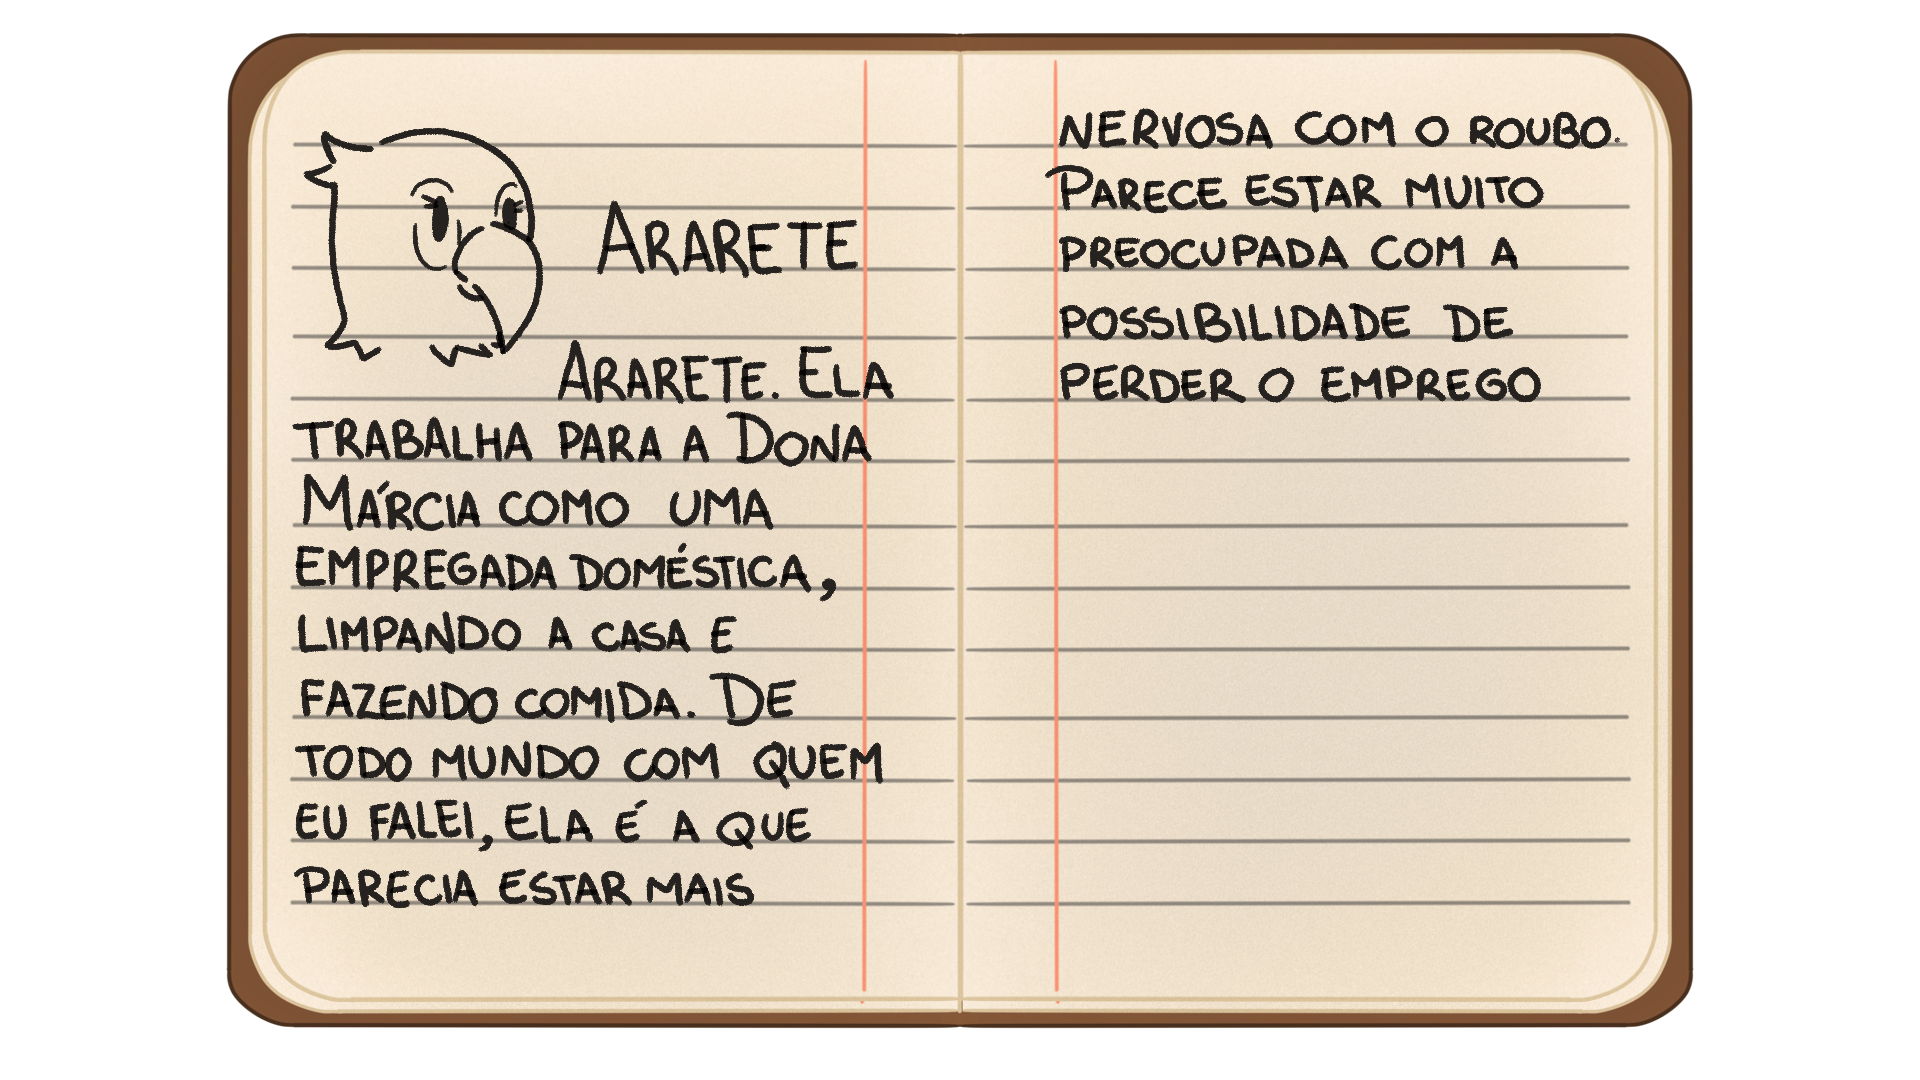 ARARETE
ARARETE. ELA
TRABALHA PARA A DONA
MÁRCIA COMO UMA
EMPREGADA DOMÉSTICA,
LIMPANDO A CASA E
FAZENDO COMIDA. DE
TODO MUNDO COM QUEM
EU FALEI, ELA É A QUE
PARECIA ESTAR MAIS
NERVOSA COM O ROUBO.
PARECE ESTAR MUITO
PREOCUPADA COM A
POSSIBILIDADE DE
PERDER O EMPREGO